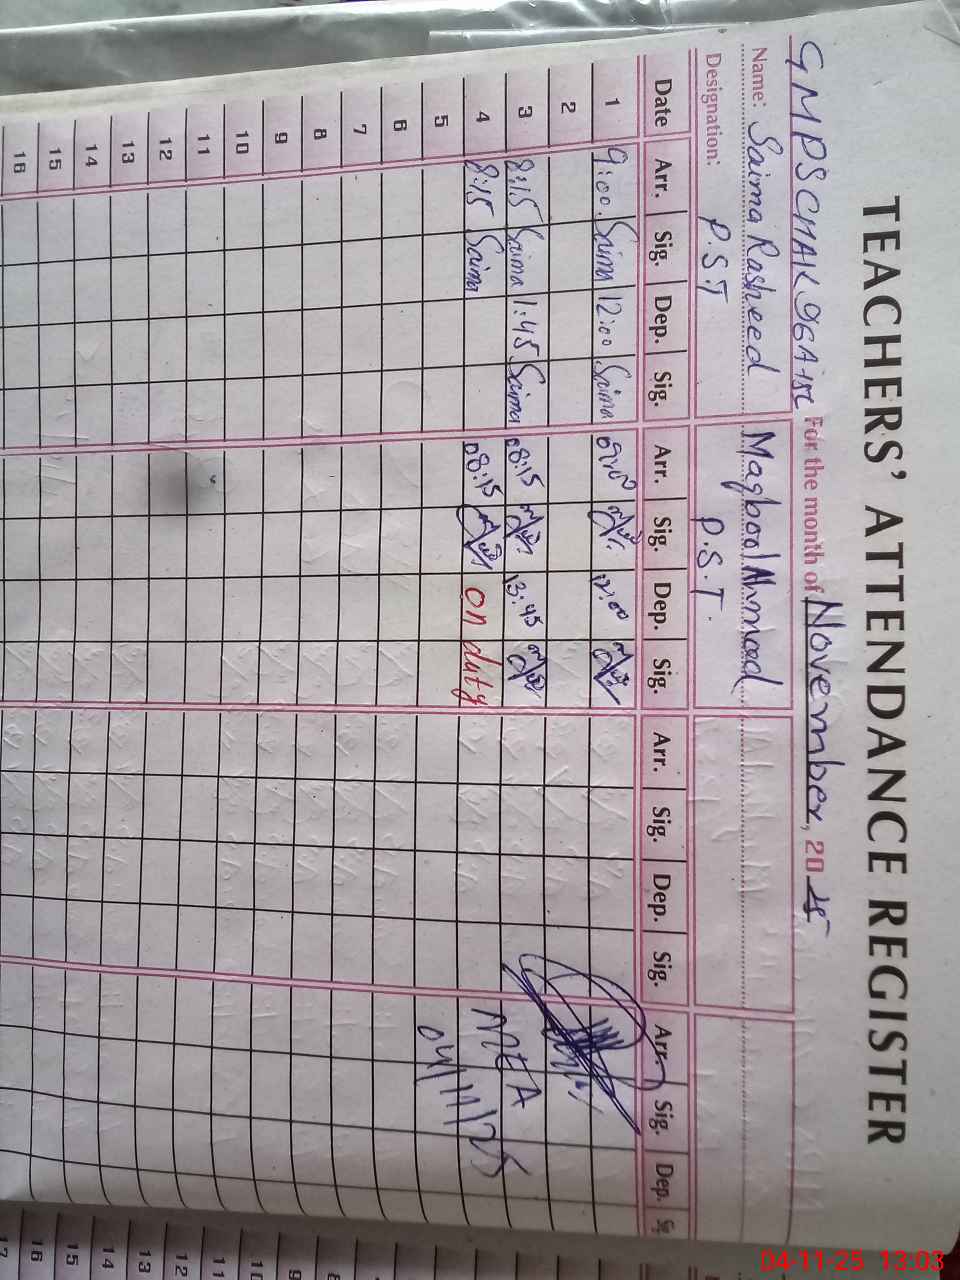 TEACHERS' ATTENDANCE REGISTER
GMPS CHAK 96A-15L For the month of November, 2025
Name: Saima Rasheed Maqbool Ahmad
Designation: P.S.T P.S.T.
Date Arr. Sig. Dep. Sig. Arr. Sig. Dep. Sig. Arr. Sig. Dep. Sig. Arr. Sig. Dep. Sig
1 9:00 Saima 12:00 Saima 12:00
2
3 8:15 Saima 1:45 Saima 08:15 13:45
4 8:15 Saima 08:15 on duty MEA
5 04/11/25
6
7
8
9
10
11
12
13
14
15
16
10
11
12
13
14
15
16
17
04-11-25 13:03